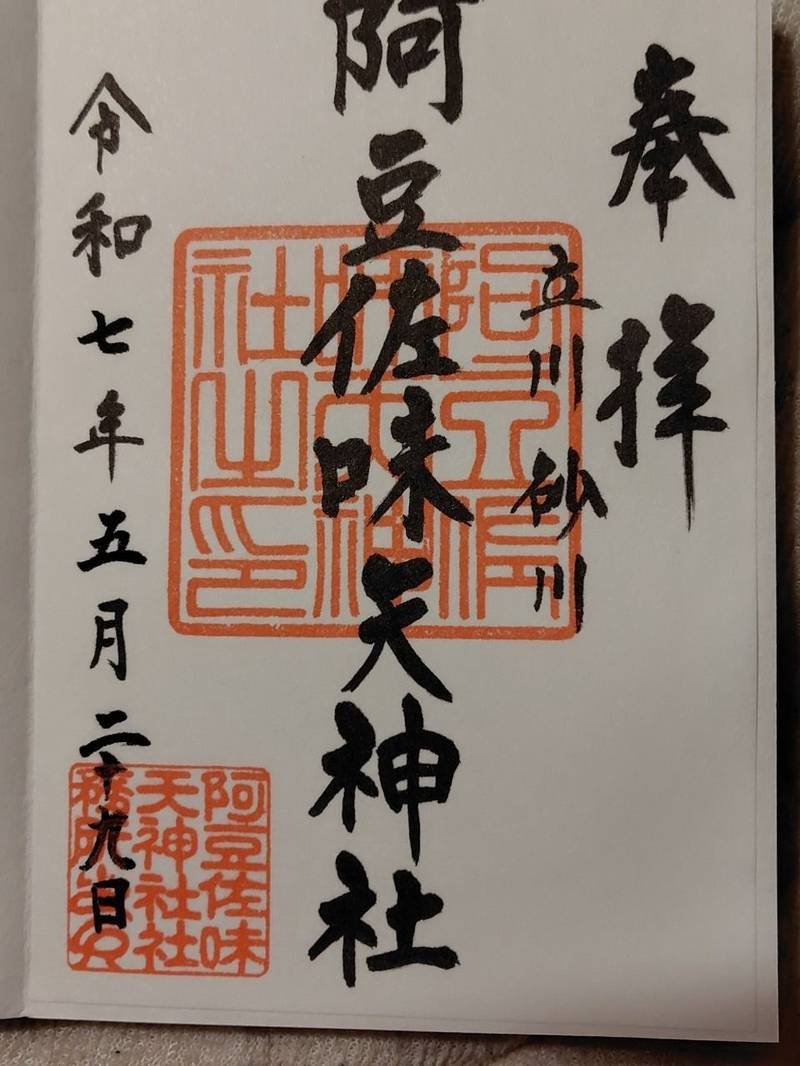 奉拝
立川砂川
阿豆佐味天神社
令和七年五月二十九日
阿豆佐味
天神社社
務所